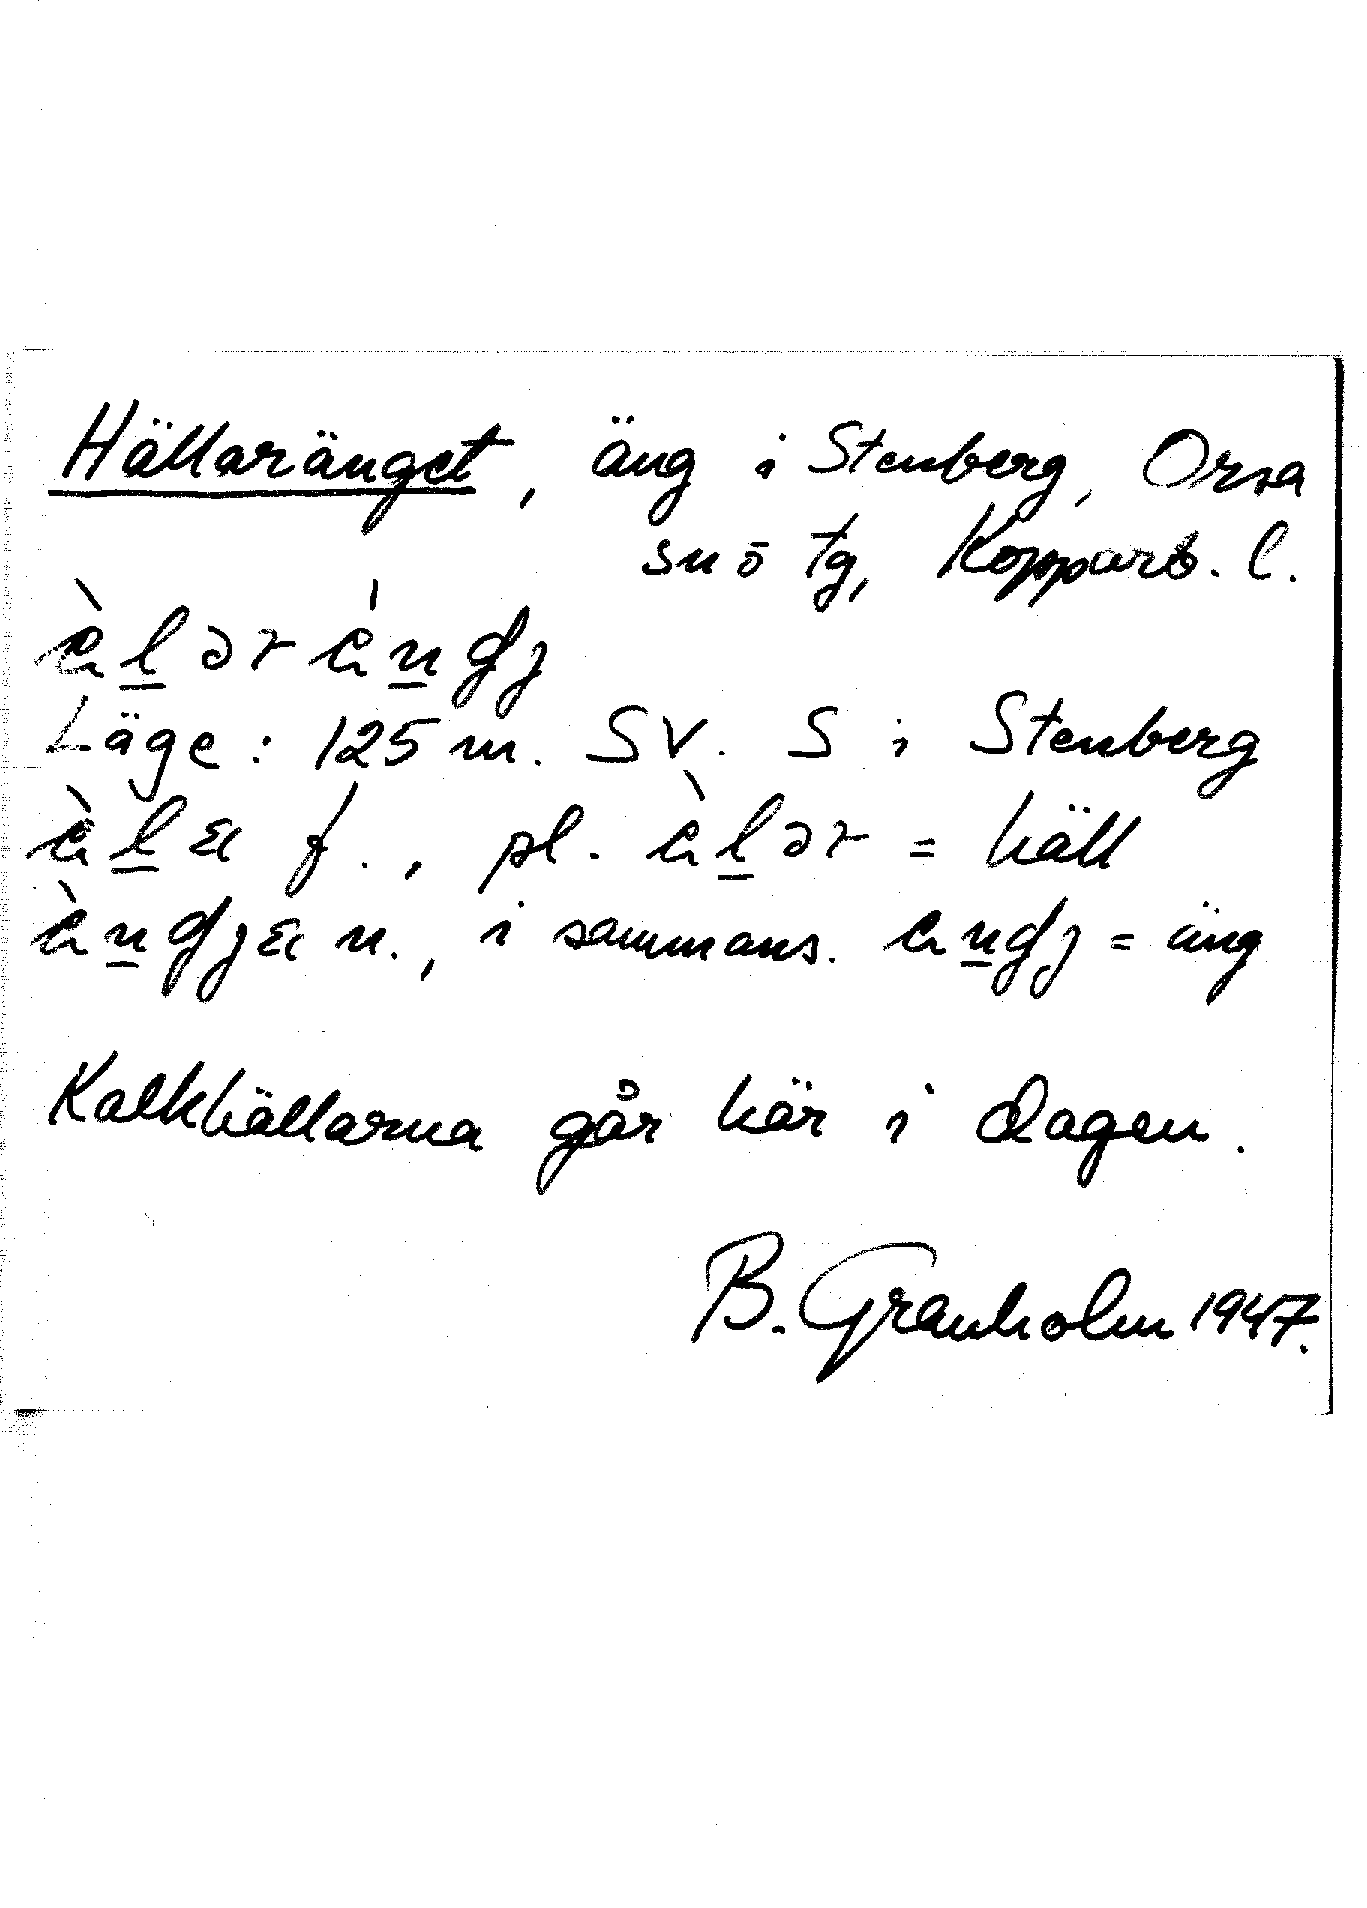 Hällaränget, äng i Stenberg, Orsa
sn ö tg, Kopparb. l.
Läge: 125 m. SV. S i Stenberg
f., pl. = häll
n., i sammans. = äng
Kalkhällarna går här i dagen.
B. Granholm 1947.